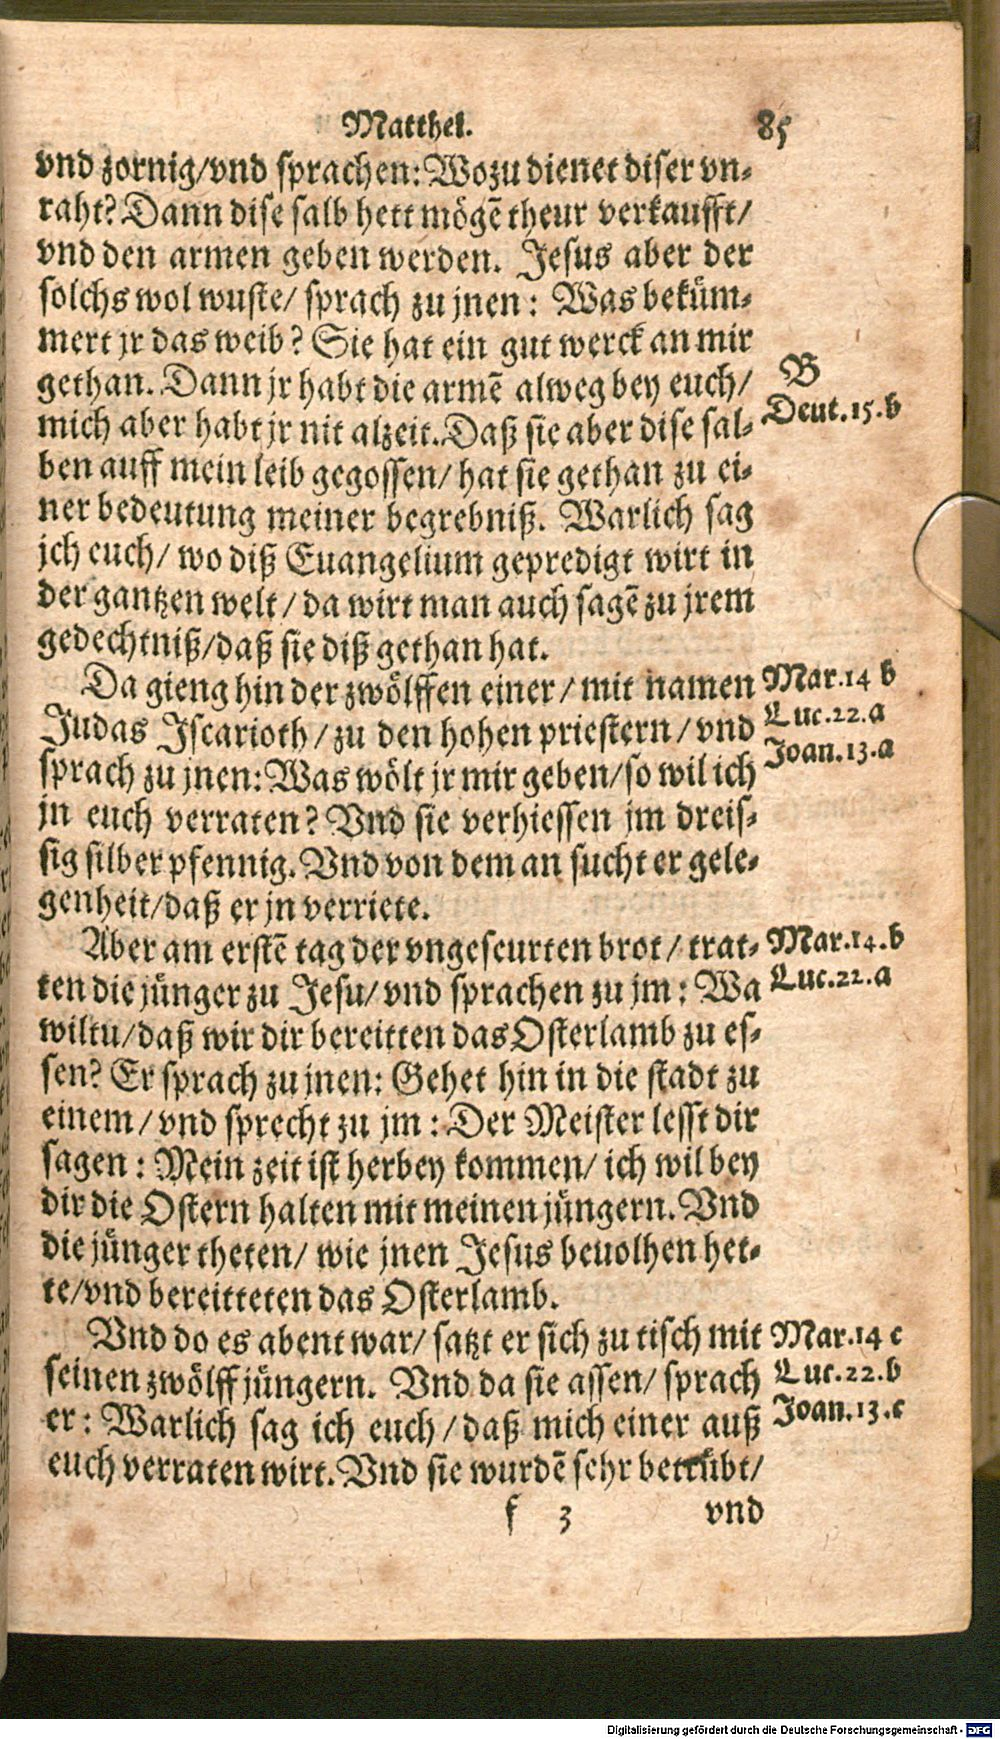 Matthei. 85
vnd zornig/vnd sprachen: Wozu dienet diser vn⸗
raht? Dann dise salb hett mögē theur verkaufft/
vnd den armen geben werden. Jesus aber der
solchs wol wuste/ sprach zu jnen: Was beküm⸗
mert jr das weib? Sie hat ein gut werck an mir
gethan. Dann jr habt die armē alweg bey euch/
B
Deut.15.b
mich aber habt jr nit alzeit. Daß sie aber dise sal⸗
ben auff mein leib gegossen/ hat sie gethan zu ei⸗
ner bedeutung meiner begrebniß. Warlich sag
jch euch/ wo diß Euangelium gepredigt wirt in
der gantzen welt/ da wirt man auch sagē zu jrem
gedechtniß/daß sie diß gethan hat.
Da gieng hin der zwölffen einer/ mit namen
Mar.14 b
Judas Jscarioth/ zu den hohen priestern/ vnd
Luc.22.a
sprach zu jnen: Was wölt jr mir geben/so wil ich
Joan.13.a
jn euch verraten? Vnd sie verhiessen jm dreis⸗
sig silber pfennig. Vnd von dem an sucht er gele⸗
genheit/daß er jn verriete.
Aber am erstē tag der vngeseurten brot/ trat⸗
Mar.14.b
ten die jünger zu Jesu/ vnd sprachen zu jm: Wa
Luc.22.a
wiltu/daß wir dir bereitten das Osterlamb zu es⸗
sen? Er sprach zu jnen: Gehet hin in die stadt zu
einem/ vnd sprecht zu jm: Der Meister lesst dir
sagen: Mein zeit ist herbey kommen/ ich wil bey
dir die Ostern halten mit meinen jüngern. Vnd
die jünger theten/ wie jnen Jesus beuolhen het⸗
te/vnd bereitteten das Osterlamb.
Vnd do es abent war/ satzt er sich zu tisch mit
Mar.14 c
seinen zwölff jüngern. Vnd da sie assen/ sprach
Luc.22.b
er: Warlich sag ich euch/ daß mich einer auß
Joan.13.c
euch verraten wirt. Vnd sie wurdē sehr betrübt/
f 3 vnd
Digitalisierung gefördert durch die Deutsche Forschungsgemeinschaft - DFG